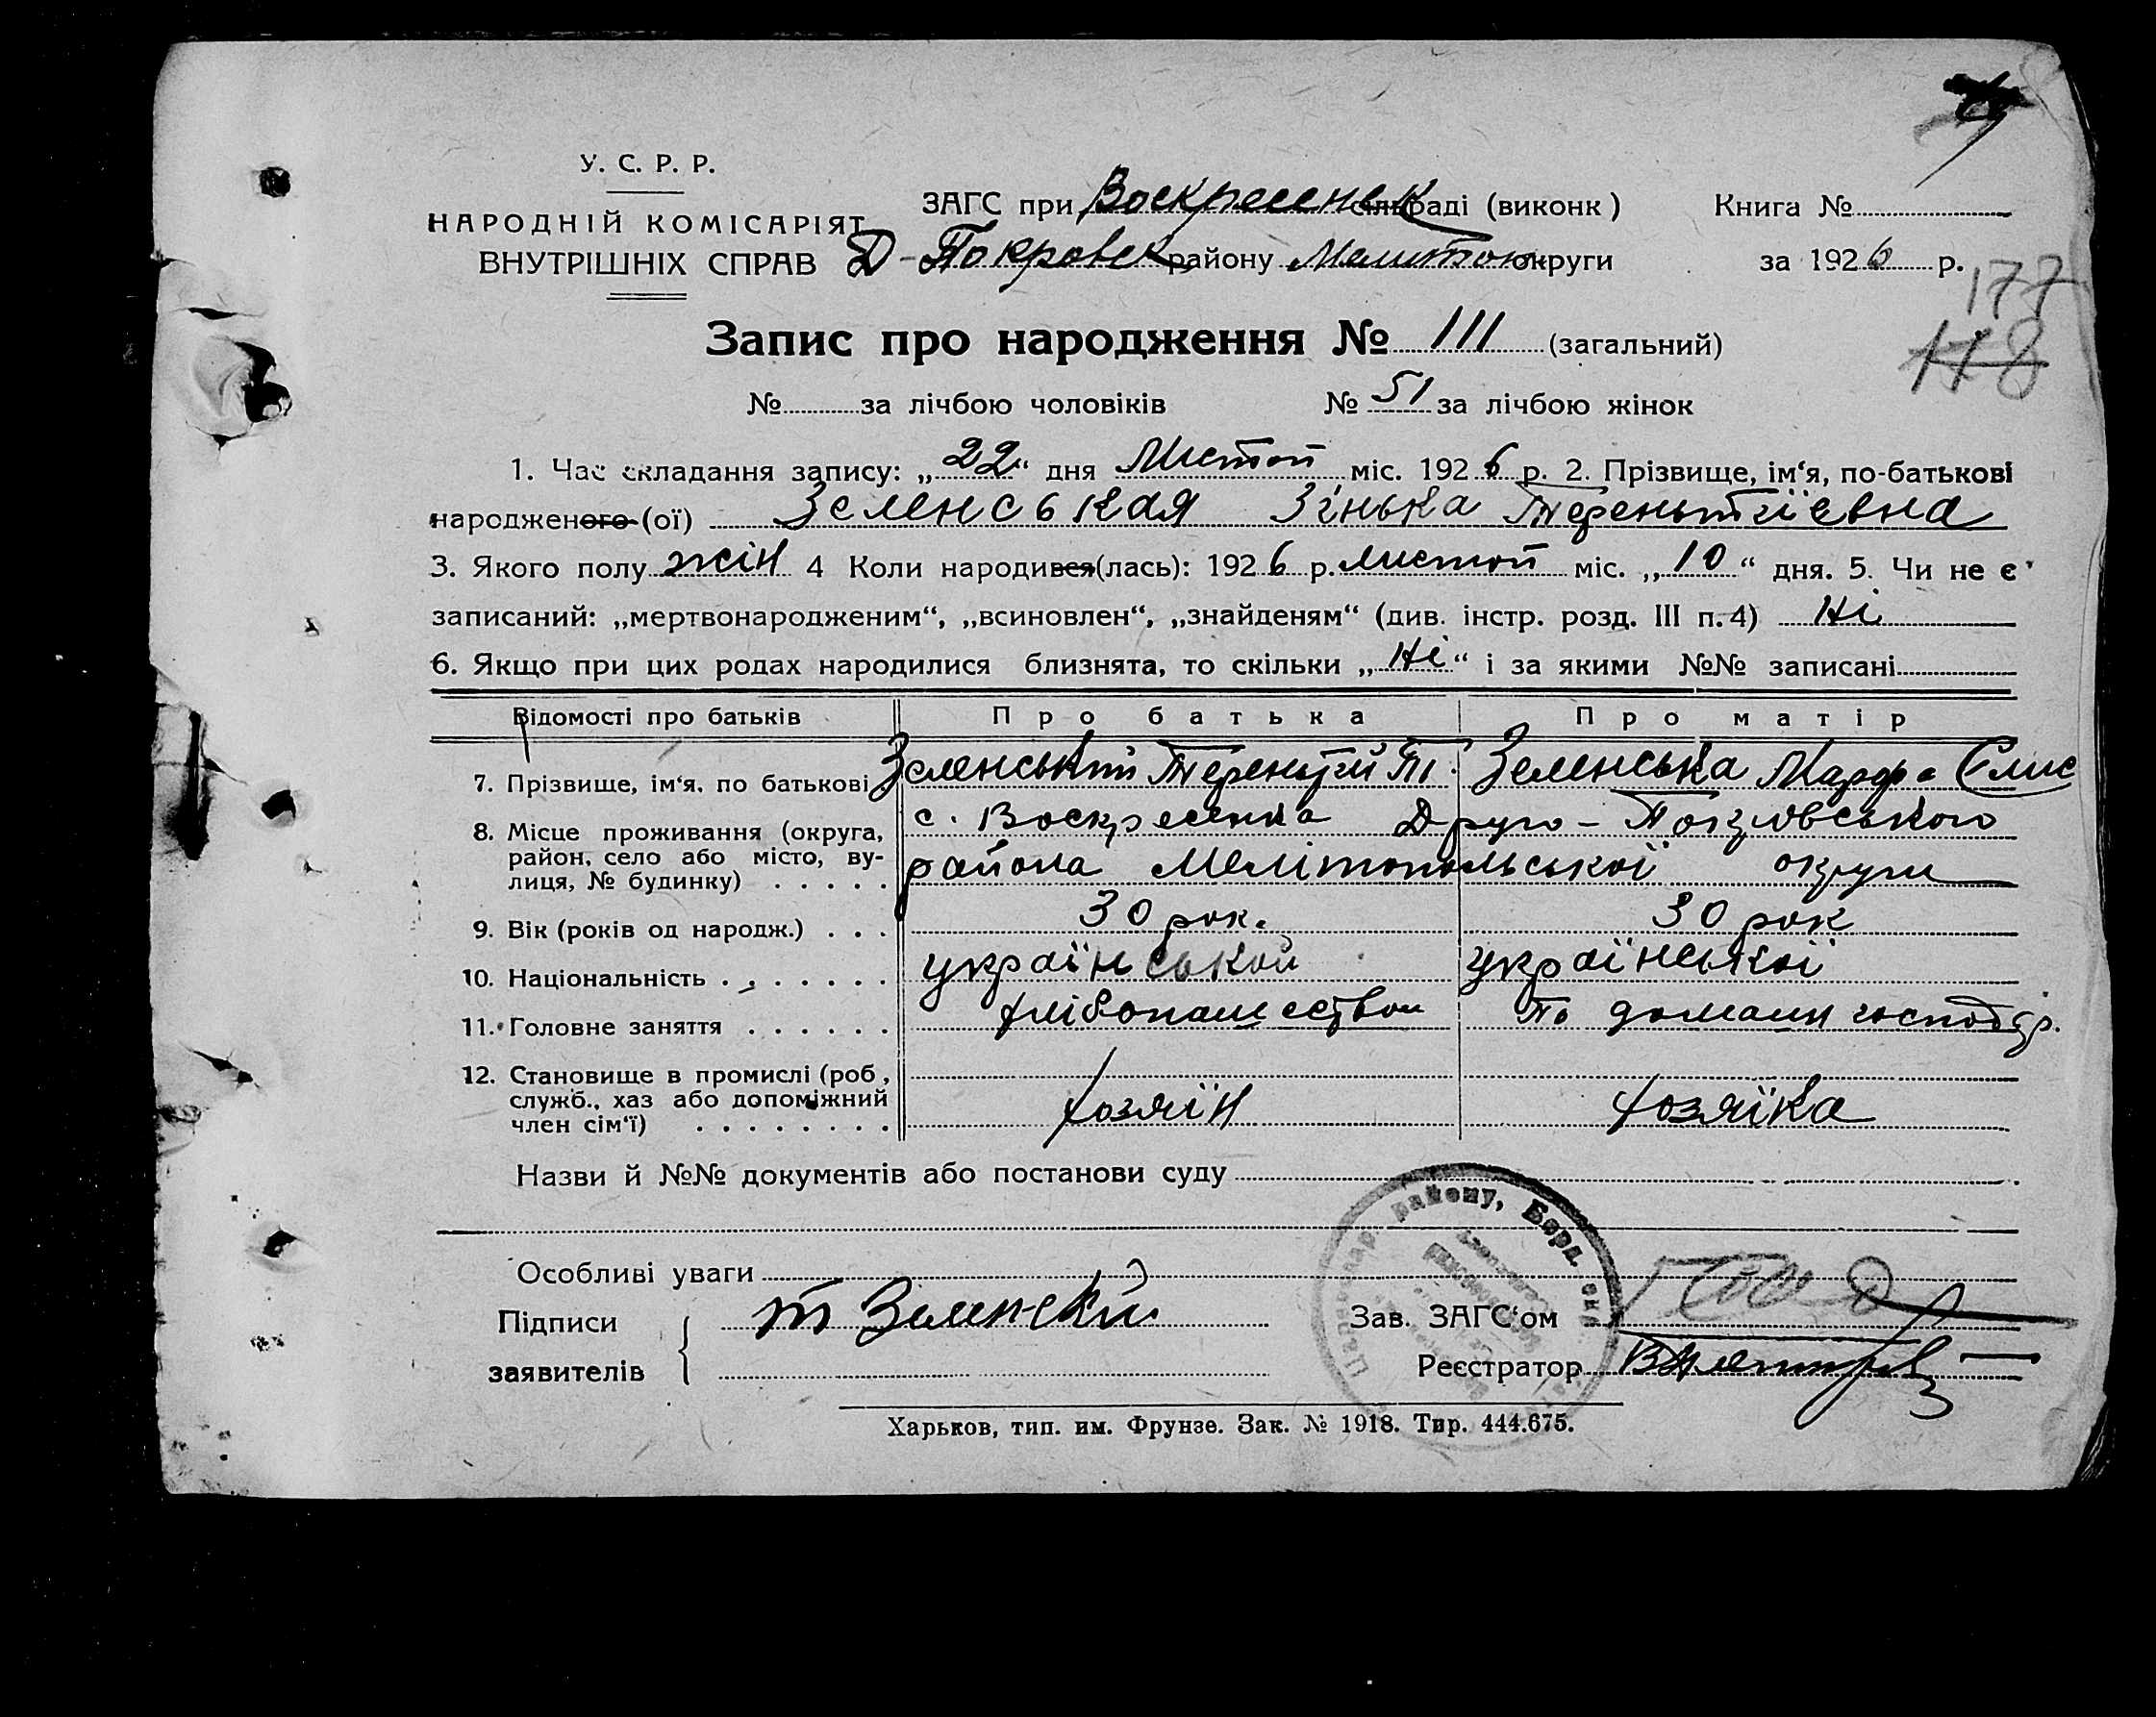 У. С. Р. Р.
НАРОДНІЙ КОМІСАРІЯТ
ВНУТРІШНІХ СПРАВ
ЗАГС при Воскресенск сільраді (виконк)
Д-Покровск району Мелитоп округи
Книга №
за 1926 р.
177
118
Запис про народження № 111 (загальний)
№ за лічбою чоловіків № 51 за лічбою жінок
1. Час складання запису: „22“ дня Листоп міс. 1926 р. 2. Прізвище, ім‘я, по-батькові
народженого (ої) Зеленськая Зінька Тереньтіївна
3. Якого полу жін 4 Коли народився(лась): 1926 р. листоп міс. „10“ дня. 5. Чи не є
записаний: „мертвонародженим“, „всиновлен“, „знайденям“ (див. інстр. розд. III п. 4) Ні
6. Якщо при цих родах народилися близнята, то скільки „Ні“ і за якими №№ записані
Відомості про батьків Про батька Про матір
7. Прізвище, ім‘я, по батькові Зеленський Терентій Зеленська Марфа Єлис
8. Місце проживання (округа, с. Воскресенка Друго-Покровського
район, село або місто, ву- района Мелітопольської округи
лиця, № будинку)
9. Вік (років од народж.) 30 рок. 30 рок
10. Національність української української
11. Головне заняття хлібопашеством по домашн господар.
12. Становище в промислі (роб,
служб., хаз або допоміжний хозяїн хозяїка
член сім‘ї)
Назви й №№ документів або постанови суду
району, Берд. окр
Особливі уваги
Підписи т Зеленский Зав. ЗАГС‘ом
заявителів Реєстратор
Харьков, тип. им. Фрунзе. Зак. № 1918. Тир. 444.675.